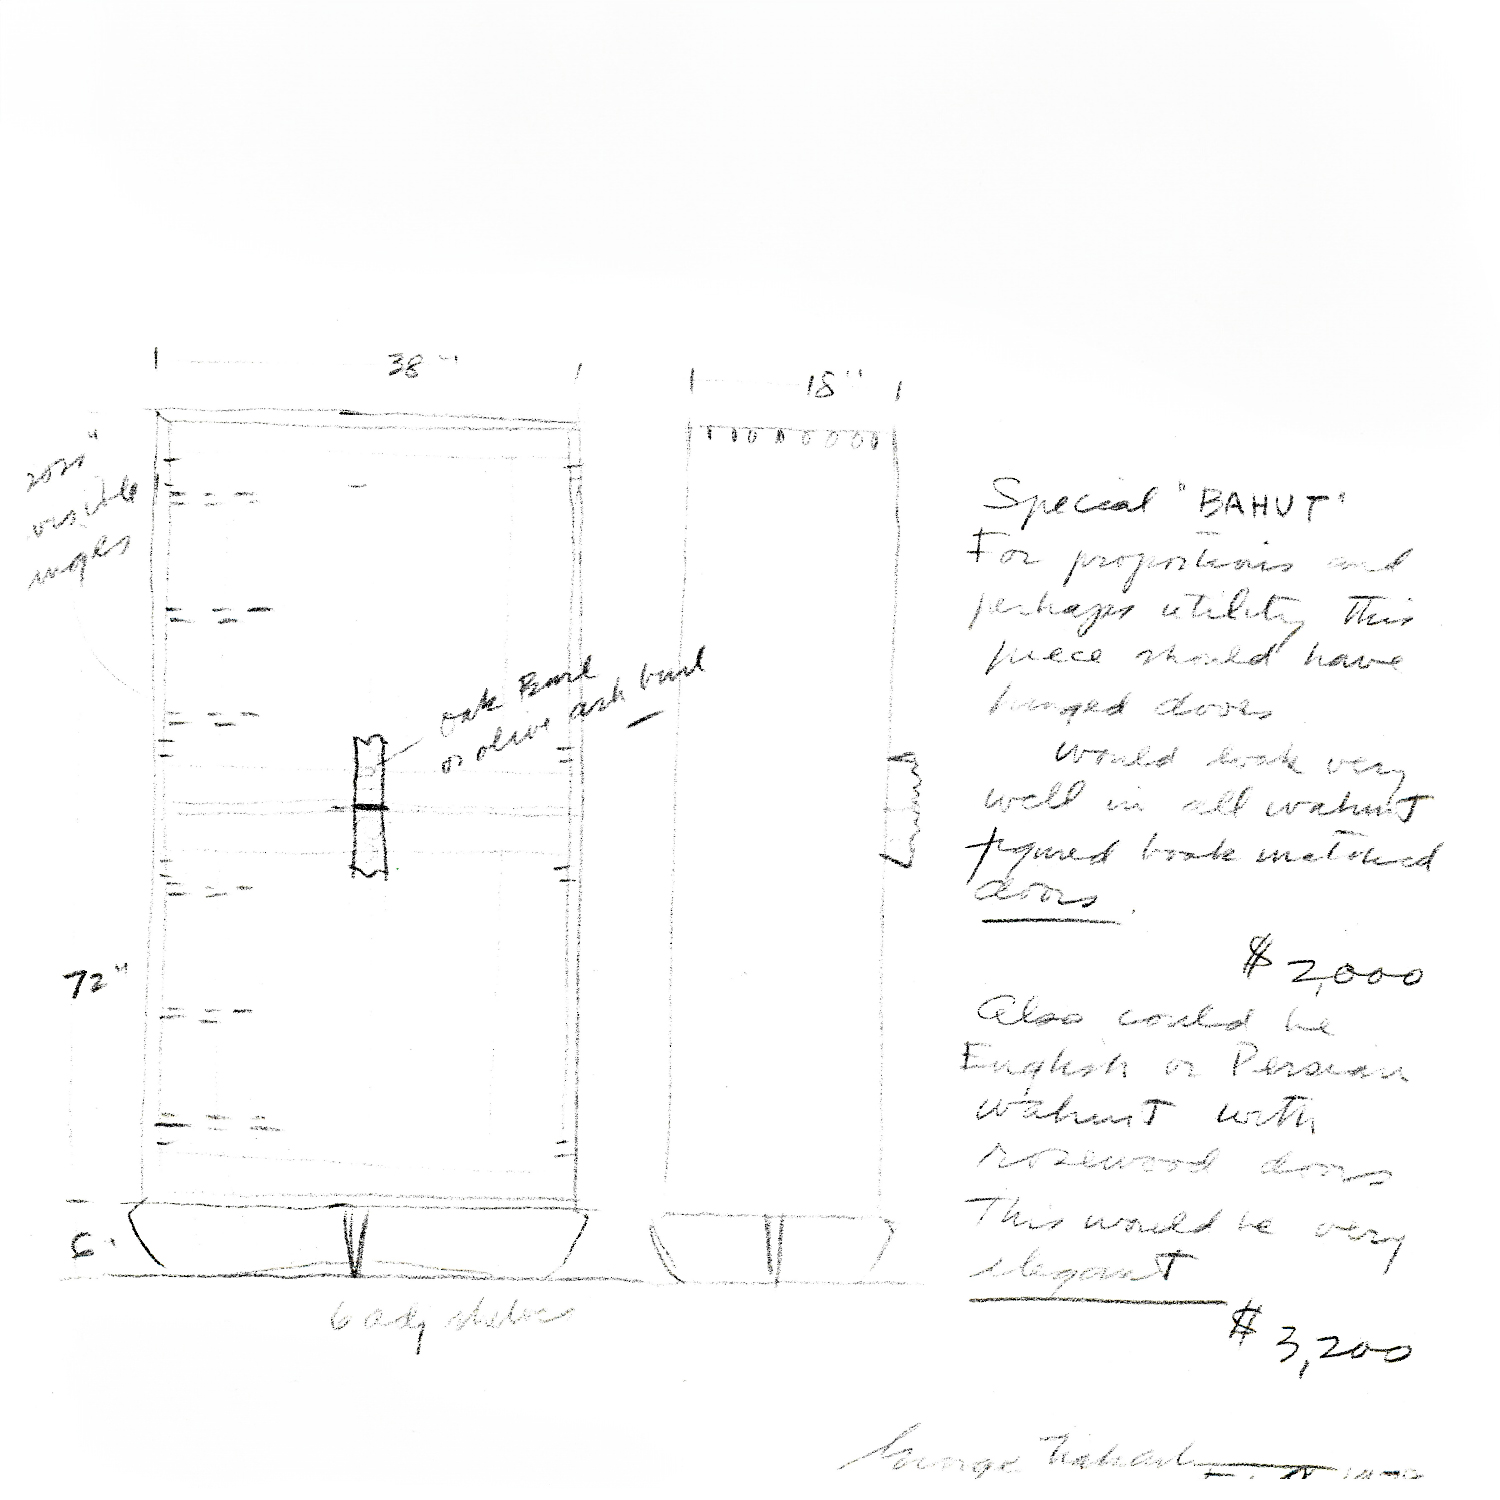 38"
18"
visible
oak Burl
or olive ash burl
72"
6"
6 adj shelves
Special "BAHUT"
For proportions and
perhaps utility this
piece should have
hinged doors
would look very
well in all walnut
figured book matched
doors.
$2,000
Also could be
English or Persian
walnut with
rosewood doors
This would be very
elegant
$3,200
George Nakashima